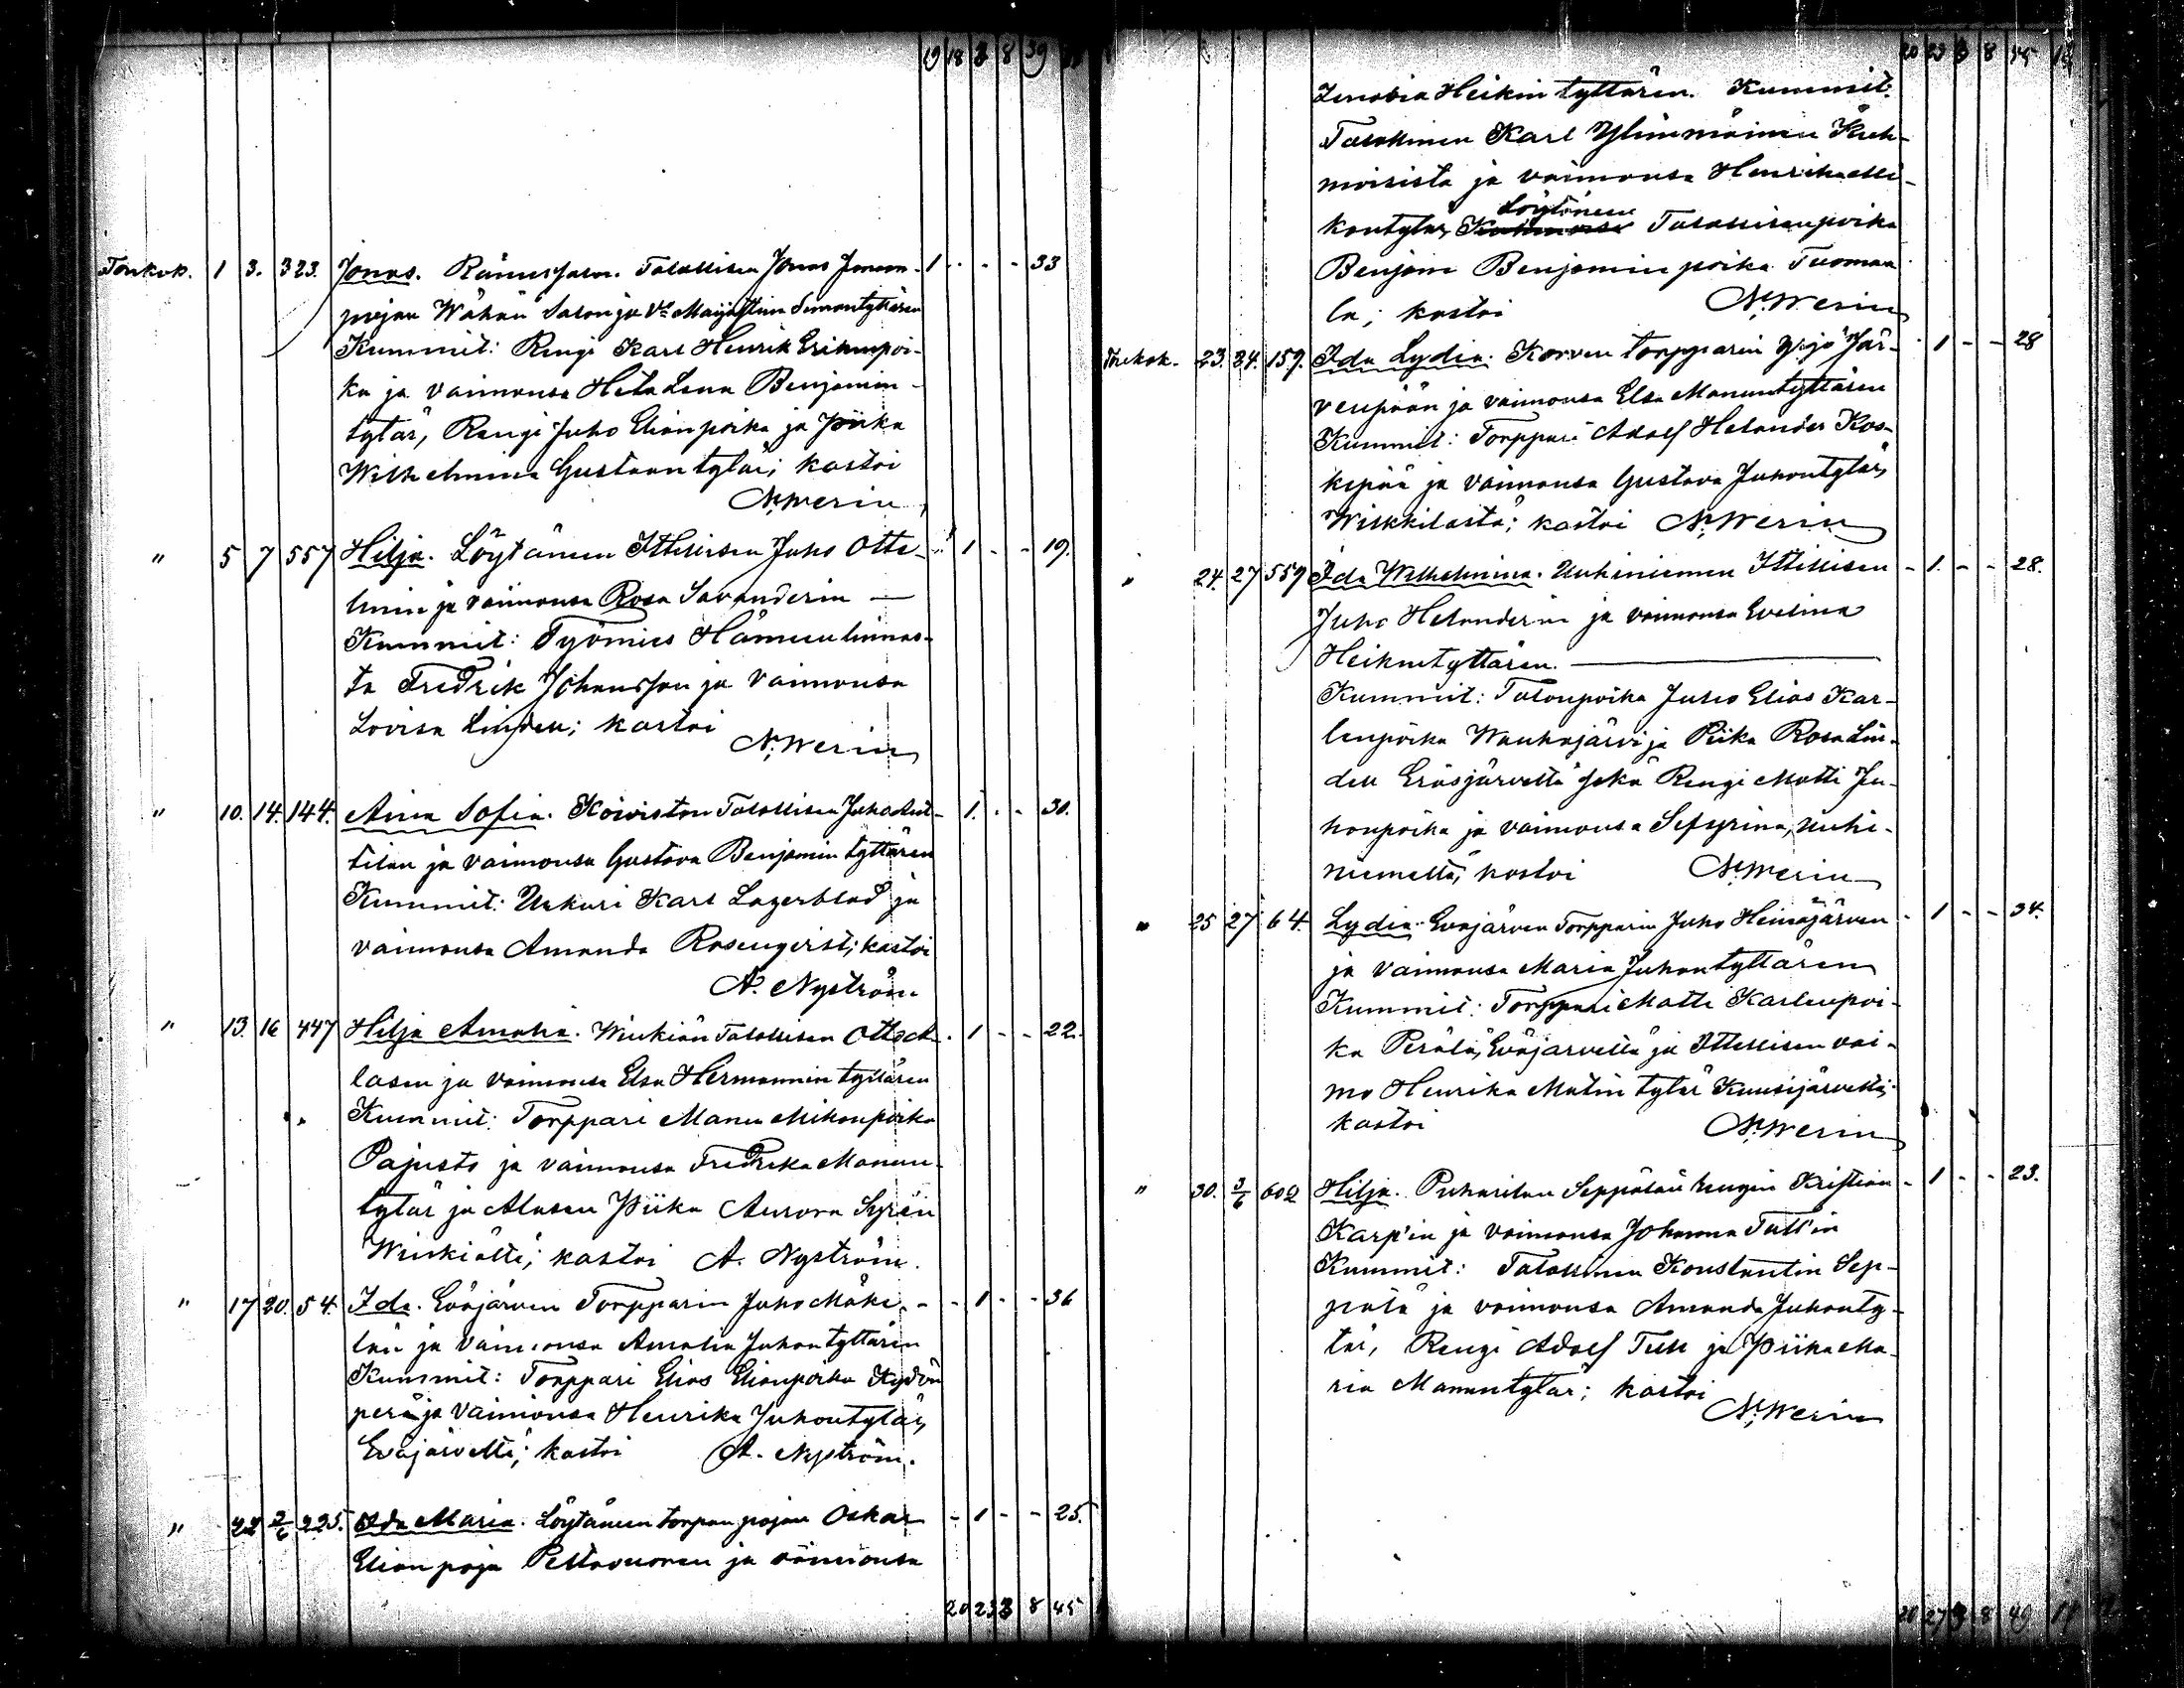 19 18 3 8 39
Toukok. 1 3. 323. Jonas. Rämessalon Talollisen Jonas Joonan- 1 - - - 33
pojan Wähän Salon ja V:o Maija Stiina Simontyttären
Kummit: Rengi Karl Henrik Erikinpoi-
ka ja vaimonsa Heta Lena Benjamin-
tytär, Rengi Juho Elianpoika ja Piika
Wilhelmina Gustaantytär; kastoi
N. Werin
" 5 7 557 Hilja. Löytänen Itsellisen Juho Otte- - 1 - - 19.
linin ja vaimonsa Rosa Savanderin —
Kummit: Työmies Hämeenlinnas-
ta Fredrik Johansson ja vaimonsa
Lovisa Linden; kastoi
N. Werin
" 10. 14. 144. Aina Sofia. Koiviston Talollisen Juho Ant- - 1. - - 30.
tilan ja vaimonsa Gustava Benjamintyttären
Kummit: Urkuri Karl Lagerblad ja
vaimonsa Amanda Rosenqvist; kastoi
A. Nyström
" 13. 16 447 Hilja Amalia. Winkiän Talollisen Otto A- - 1 - - 22.
lasen ja vaimonsa Elsa Hermannin tyttären
Kummit: Torppari Manu Mikonpoika
Pajusto ja vaimonsa Fredrika Manun-
tytär ja Alasen Piika Aurora Syrén
Winkiältä; kastoi A. Nyström.
" 17 20. 54. Ida. Eväjärven Torpparin Juho Mäke- - 1 - - 36
län ja vaimonsa Amalia Juhontyttären
Kummit: Torppari Elias Elianpoika Kydön
perä ja vaimonsa Henrika Juhontytär,
Eväjärveltä; kastoi A. Nyström.
" 22 2/6 225. Ida Maria. Löytänen torpan pojan Oskar - 1 - - 25.
Elian poja Peltovuoren ja vaimonsa
20 23 3 8 45
20 23 3 8 45 14
Zenobia Heikin tyttären. Kummit:
Talollinen Karl Ylinmäinen Kuh-
moisista ja vaimonsa Henrika Mi-
kontytär, Löytänen Talollisenpoika
Benjam Benjaminpoika Tuomaa-
la; kastoi N. Werin
Toukok. 23. 24. 159. Ida Lydia. Korven torpparin Yrjö Jär- - 1 - - 28
venpään ja vaimonsa Elsa Manuntyttären
Kummit: Torppari Adolf Helander Kos-
kipää ja vaimonsa Gustava Juhontytär,
Wilkkilästä; kastoi N. Werin
" 24. 27 559 Ida Wilhelmina. Unhiniemen Itsellisen - 1. - - 28.
Juho Helanderin ja vaimonsa Evelina
Heikintyttären. —
Kummit: Talonpoika Juho Elias Kar-
lenpoika Wauhajärvi ja Piika Rosa Lin-
den Eräsjärveltä sekä Rengi Matti Ju-
honpoika ja vaimonsa Sefyrina, Unhi-
niemeltä; kastoi N. Werin
" 25 27 64. Lydia. Eväjärven Torpparin Juho Heinäjärven - 1 - - 34.
ja vaimonsa Maria Juhontyttären
Kummit: Torppari Matti Karlenpoi-
ka Perälä, Eväjärveltä ja Itsellisen vai-
mo Henrika Matintytär Kuusijärveltä;
kastoi N. Werin
" 30. 3/6 602 Hilja. Puharilan Seppälän rengin Kristian - 1 - - 23.
Karp'in ja vaimonsa Johanna Tull'in
Kummit: Talollinen Konstantin Sep-
pälä ja vaimonsa Amanda Juhonty-
tär, Rengi Adolf Tull ja Piika Ma-
ria Manuntytär; kastoi
N. Werin
20 27 3 8 49 14